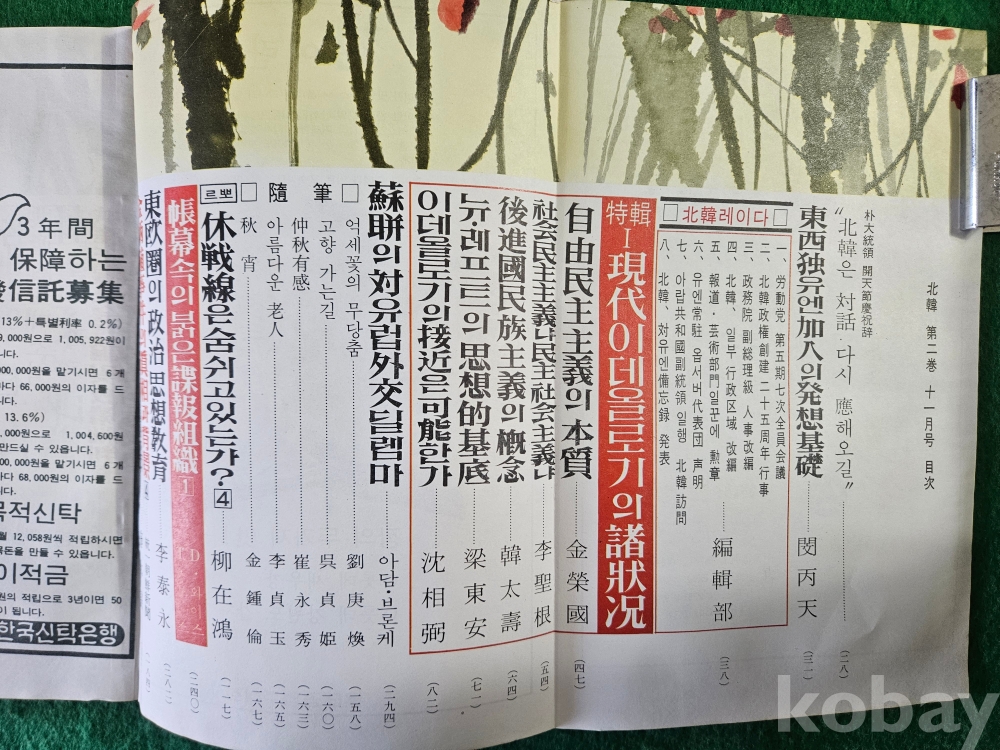 北韓 第二卷 十一月号 目次
朴大統領 開天節慶祝辞
“北韓은 対話·다시 應해오길” (二八)
東西独유엔加入의発想基礎 閔丙天 (三一)
北韓레이다
一、労動党 第五期七次全員会議
二、北韓政権創建二十五周年行事
三、政務院 副総理級 人事改編
四、北韓、일부 行政区域 改編
五、報道・芸術部門일꾼에 勲章
六、유엔常駐 옵서버代表団 声明
七、아랍共和國副統領일행 北韓訪問
八、北韓、対유엔備忘録 発表
編輯部 (三八)
特輯
I 現代이데올로기의諸狀况
自由民主主義의本質 金榮國 (四七)
社会民主主義냐民主社会主義냐 李聖根 (五四)
後進國民族主義의概念 韓太壽 (六四)
뉴레프트의思想的基底 梁東安 (七一)
이데올로기의接近은可能한가 沈相弼 (八二)
蘇聯의対유럽外交딜렘마 아담·브론케 (二九四)
隨筆
억세꽃의 무당춤 劉庚煥 (一五八)
고향 가는길 呉貞姫 (一六〇)
仲秋有感 崔永秀 (一六三)
아름다운 老人 李貞玉 (一六五)
秋宵 金鍾倫 (一六七)
르뽀
休戦線은숨쉬고있는가?④ 柳在鴻 (一一七)
帳幕속의붉은諜報組織① D·와이스 (二四〇)
東欧圏의政治思想教育 李泰永 (二八二)
3年間
保障하는
信託募集
13%＋特別利率 0.2%)
000원으로 1,005,922원이
000,000원을 맡기시면 6개
마다 66,000원의 이자를 드
13.6%)
000원으로 1,004,600원
만드실 수 있습니다.
00,000원을 맡기시면 6개
마다 68,000원의 이자를 드
목적신탁
월 12,058원씩 적립하시면
목돈을 만들 수 있읍니다.
이적금
원의 적립으로 3년이면 50
이 됩니다.
한국신탁은행
kobay